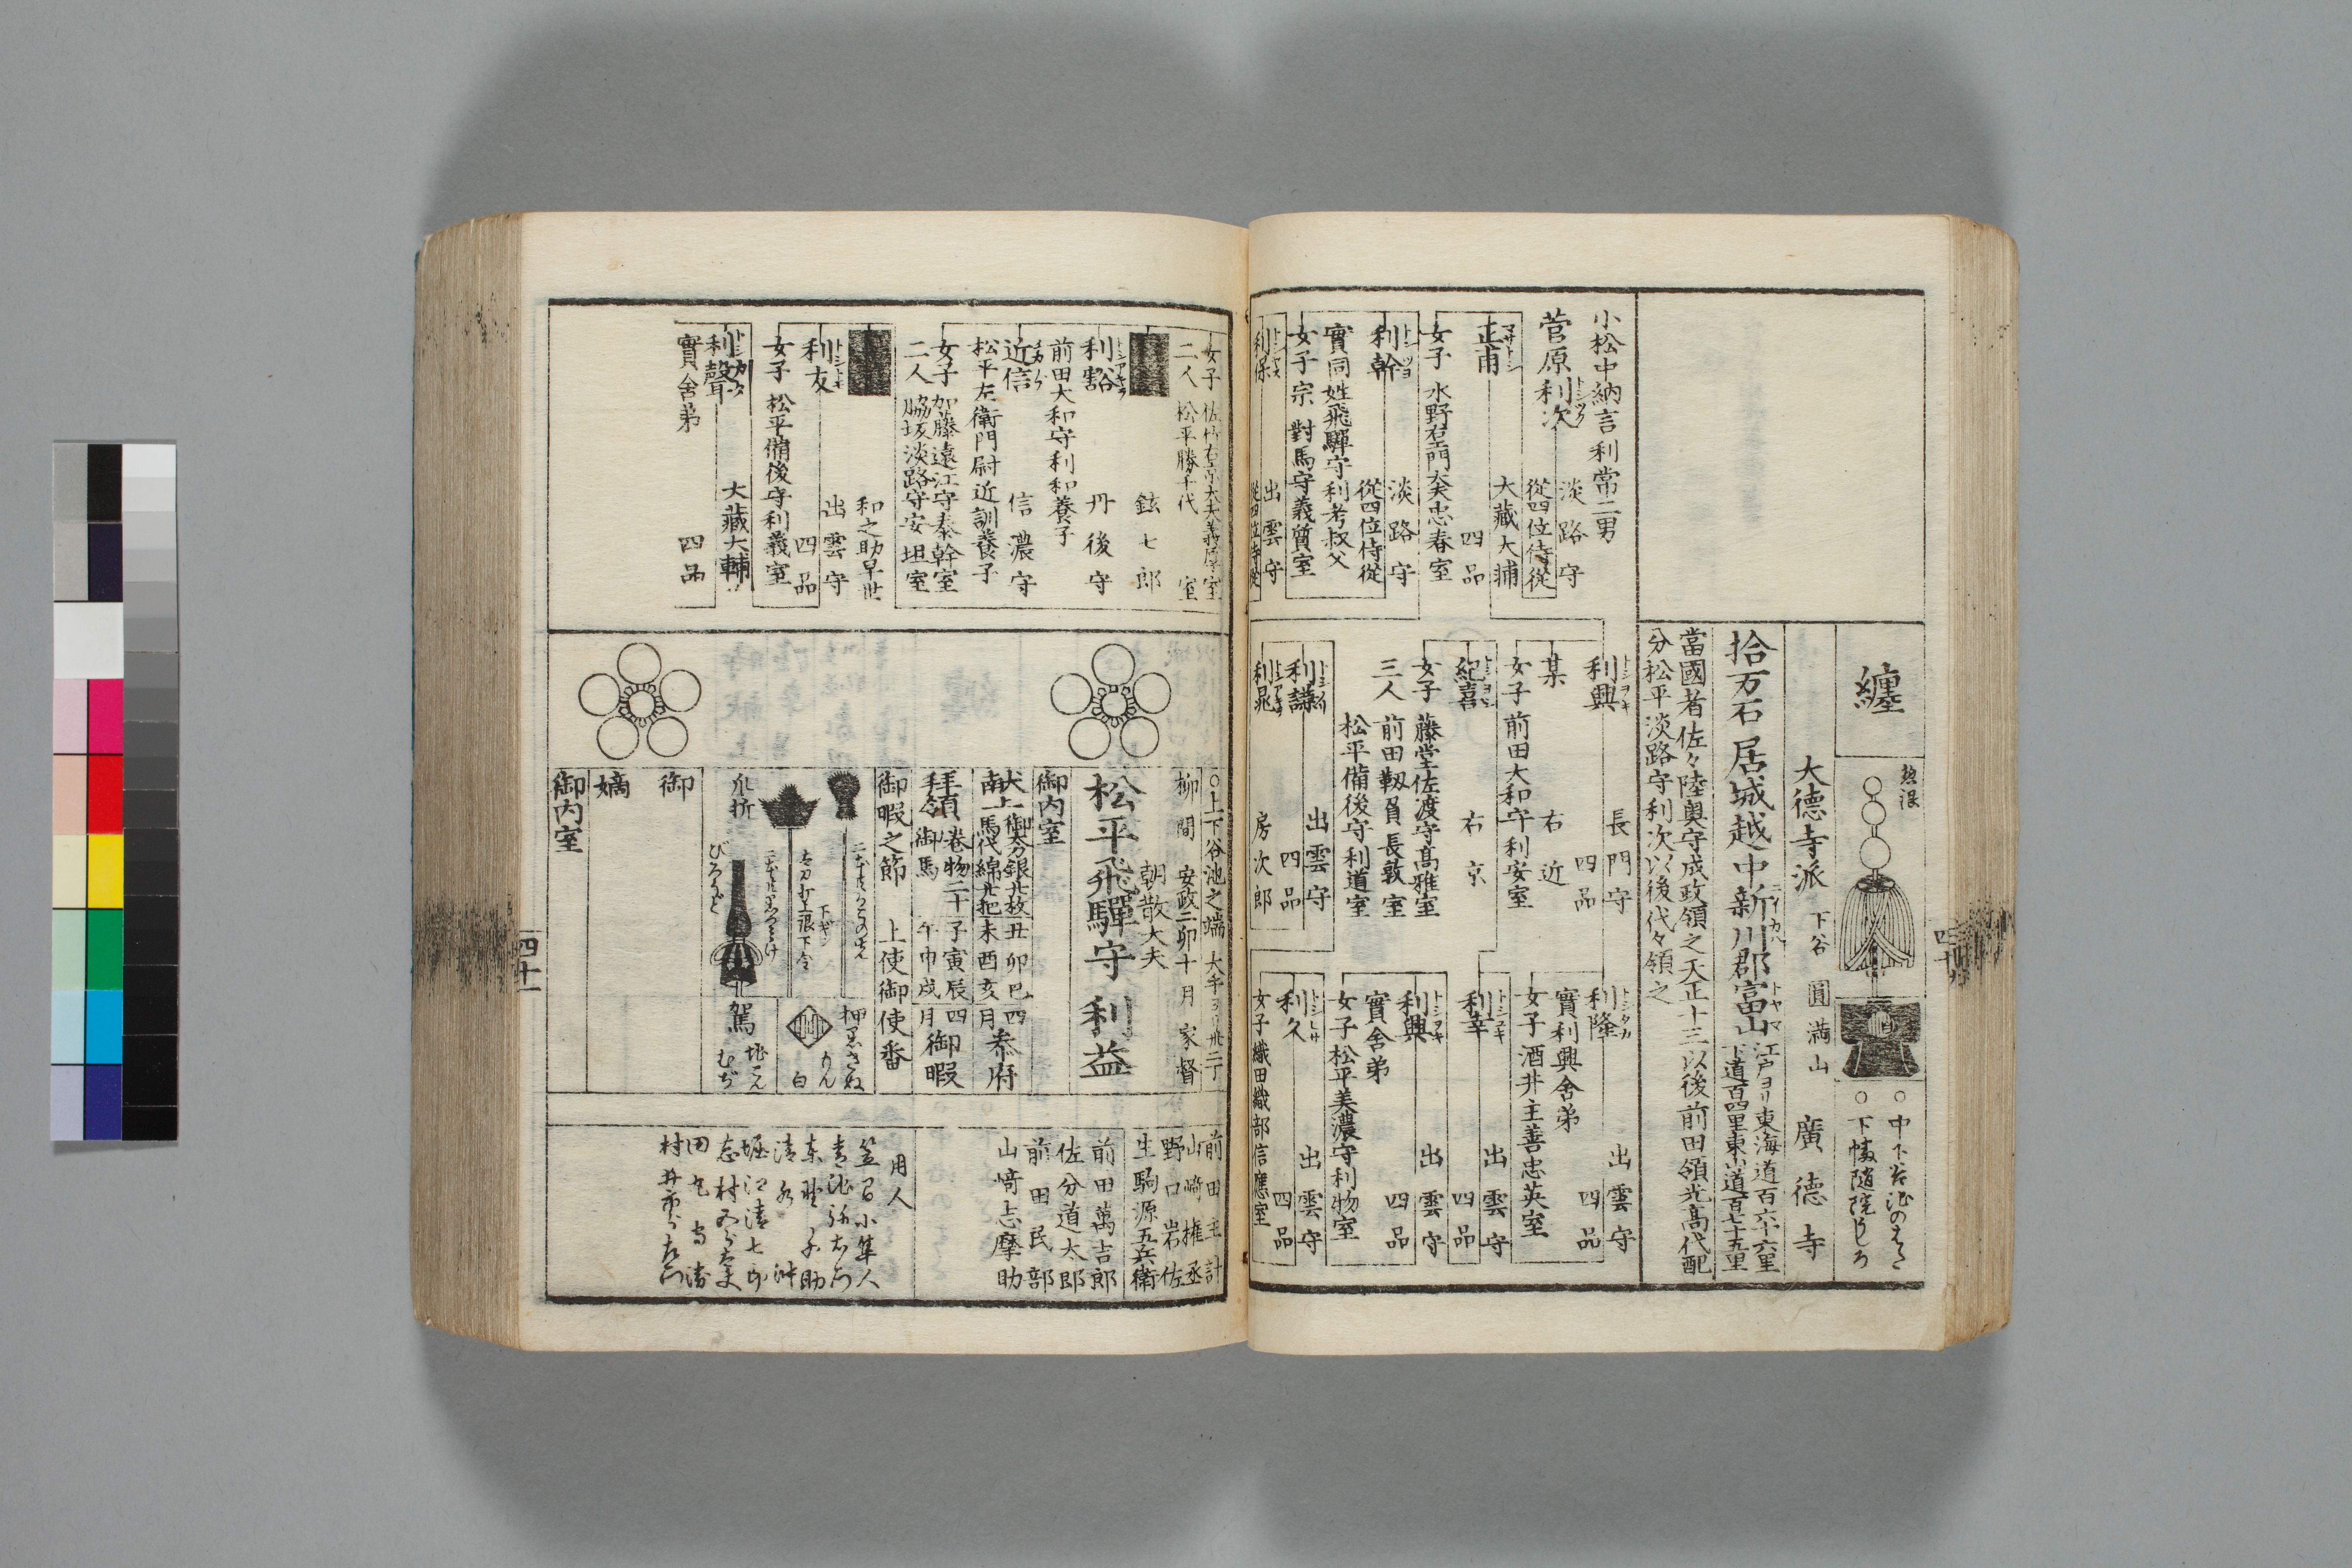 纏
惣銀
○中下谷池のはた
○下幡随院うしろ
大德寺派
下谷
圓満山
廣德寺
拾万石
居城越中新川郡富山
ニイカハ
トヤマ
江戸ヨリ東海道百六十六里
下道百四里東山道百七十五里
當國者佐々陸奥守成政領之天正十三以後前田領光高代配
分松平淡路守利次以後代々領之
小松中納言利常二男
菅原利次
トシツグ
淡路守
從四位侍從
正甫
マサトシ
大藏大輔
四品
女子
水野右エ門大夫忠春室
利幹
トシツヨ
淡路守
從四位侍從
實同姓飛驒守利考叔父
女子
宗對馬守義質室
利保
トシヤス
出雲守
從四位侍從
利興
トシヲキ
長門守
四品
某
右近
女子
前田大和守利安室
紀喜
右京
女子
三人
藤堂佐渡守高雅室
前田靱負長敦室
松平備後守利道室
利謙
出雲守
四品
利晁
房次郎
利隆
トシタカ
出雲守
四品
實利興舎弟
女子
酒井主善忠英室
利幸
トシユキ
出雲守
四品
利興
トシヲキ
出雲守
四品
實舎弟
女子
松平美濃守利物室
利久
トシヒサ
出雲守
四品
女子
織田織部信應室
四十
女子
二人
佐竹右京大夫義厚室
松平勝千代室
鉉七郎
利豁
丹後守
前田大和守利和養子
近信
信濃守
松平左衛門尉近訓養子
女子
二人
加藤遠江守泰幹室
脇坂淡路守安坦室
和之助早世
利友
出雲守
四品
女子
松平備後守利義室
利聲
トシカタ
大藏大輔
四品
實舎弟
○上下谷池之端
大手ヨリ廿二丁
柳間
安政二卯十月家督
朝散大夫
松平飛驒守利益
御内室
献上
御太刀銀廿枚
馬代綿廿把
丑卯巳
未酉亥
四月
參府
拜領
巻物二十
御馬
子寅辰
午申戌
四月
御暇
御暇之節
上使御使番
二本とも
太刀打上銀下金
爪折
びろうど
押黒
もん白
駕
むぢ
御
嫡
御内室
前田主計
山﨑権丞
野口岩佐
生駒源五兵衛
前田萬吉郎
佐分道太郎
前田民部
山﨑志摩助
用人
笠間小隼人
堀江清七郎
四十一